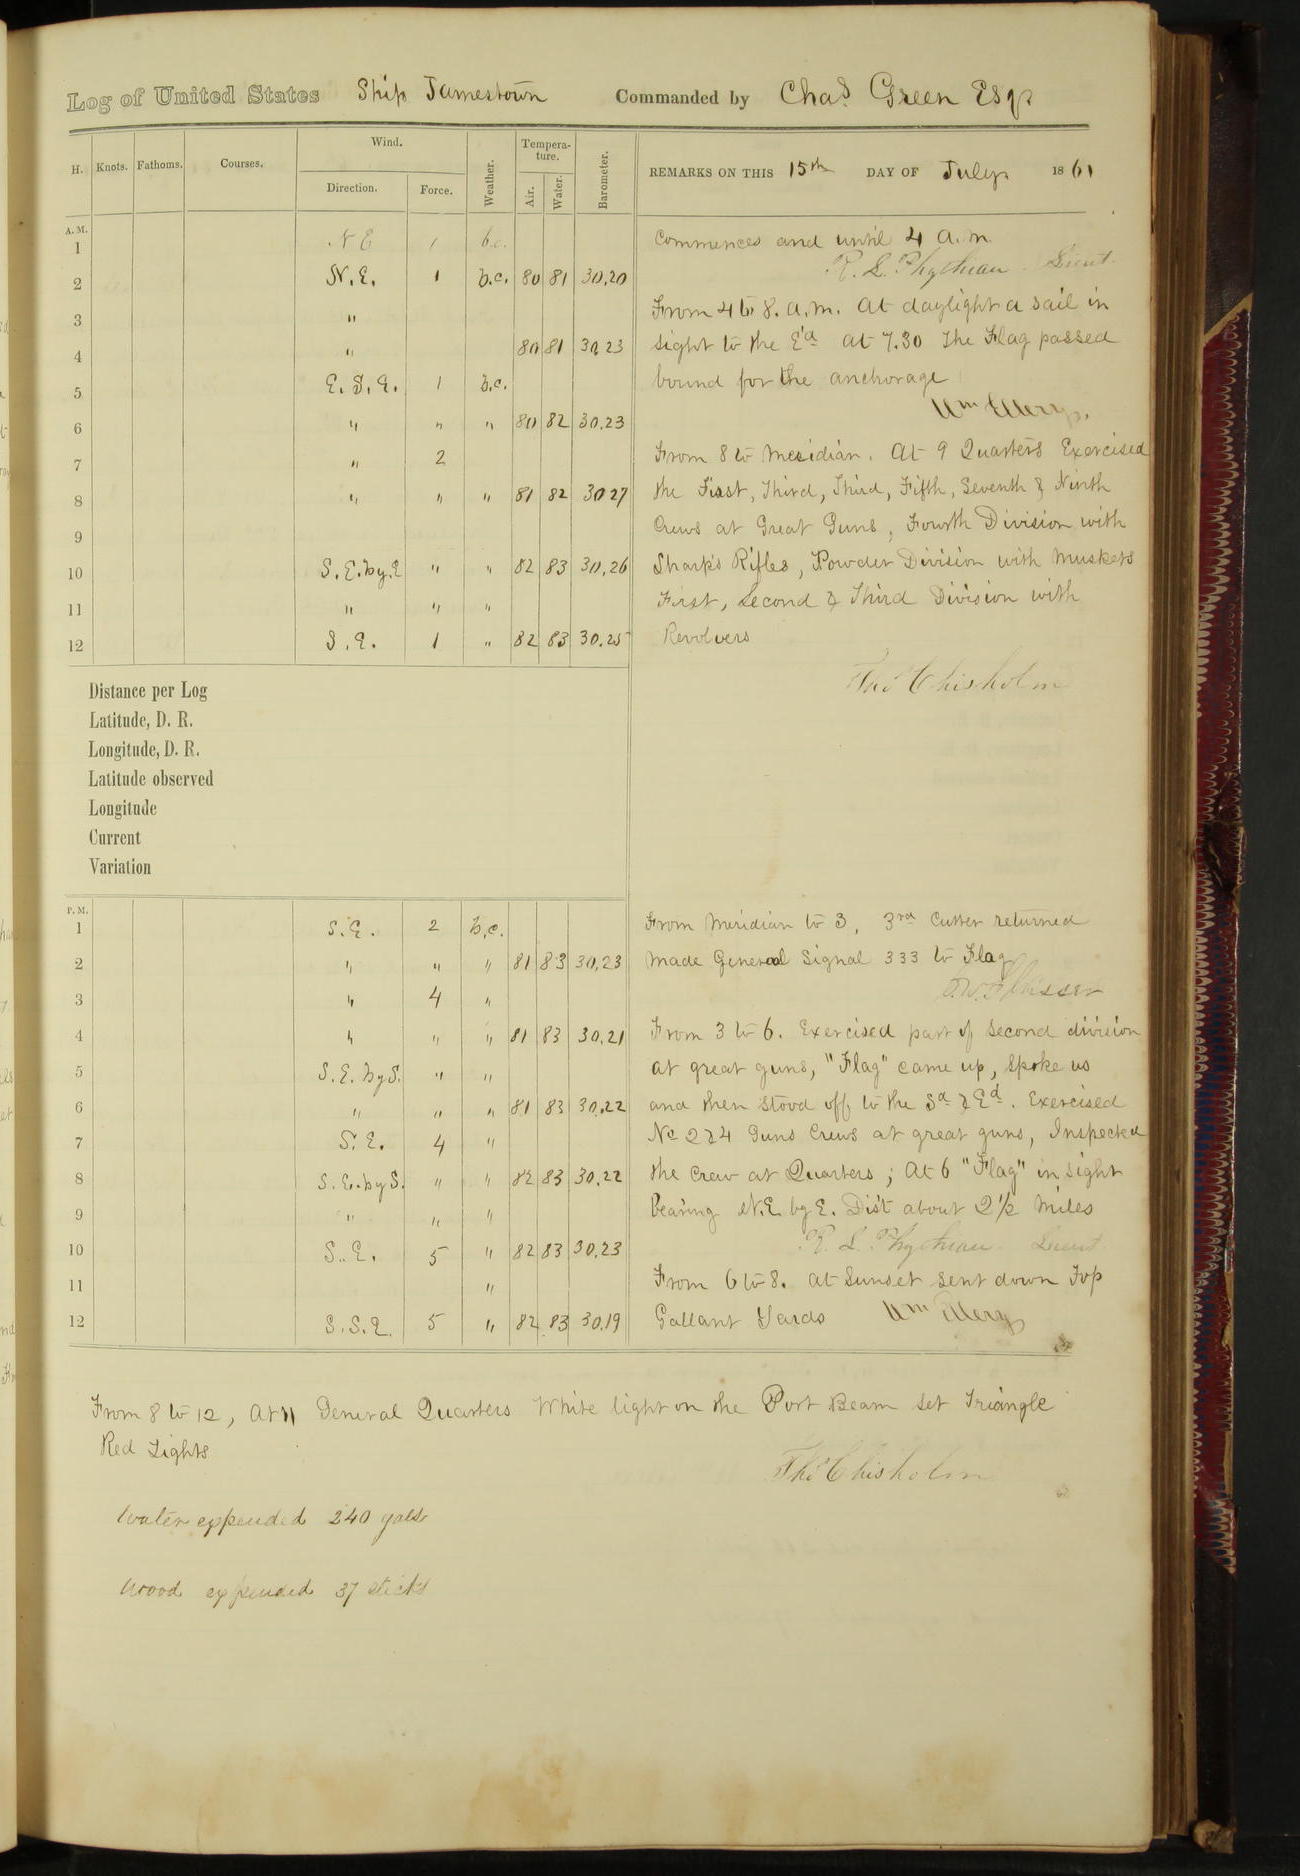 Log of United States Ship Jamestown Commanded by Chas Green Esqr
H. Knots. Fathoms. Courses. Wind. Direction. Force. Weather. Temperature. Air. Water. Barometer. REMARKS ON THIS 15th DAY OF July 1861
A.M.
1 N E 1 b.c.
2 N.E. 1 b.c. 80 81 30,20
3 "
4 " 80 81 30,23
5 E.S.E. 1 b.c.
6 " " " 80 82 30.23
7 " 2
8 " " " 81 82 30 27
9
10 S.E. by. E " " 82 83 30,26
11 " " "
12 S.E. 1 " 82 83 30.25
Commences and until 4 a.m.
R. L. Phythian Lieut.
From 4 to 8. a.m. At daylight a sail in
sight to the E'd At 7.30 The Flag passed
bound for the anchorage
Wm Ellery.
From 8 to Meridian. At 9 Quarters Exercised
the First, Third, Third, Fifth, Seventh & Ninth
Crews at Great Guns, Fourth Division with
Sharps Rifles, Powder Division with Muskets
First, Second & Third Division with
Revolvers
Tho Chisholm
Distance per Log
Latitude, D. R.
Longitude, D. R.
Latitude observed
Longitude
Current
Variation
P.M.
1 S.E. 2 b.c.
2 " " " 81 83 30,23
3 " 4 "
4 " " " 81 83 30,21
5 S.E. by S. " "
6 " " " 81 83 30,22
7 S.E. 4 "
8 S.E. by S. " " 82 83 30.22
9 " " "
10 S.E. 5 " 82 83 30.23
11 "
12 S.S.E. 5 " 82 83 30.19
From Meridian to 3, 3rd Cutter returned
Made General Signal 333 to Flag
From 3 to 6. Exercised part of second division
at great guns, "Flag" came up, spoke us
and then stood off to the Sd & Ed. Exercised
No 2 & 4 Guns Crews at great guns, Inspected
the Crew at Quarters; At 6 "Flag" in sight
bearing N.E. by E. Dist about 2 1/2 miles
R. L. Phythian Lieut
From 6 to 8. At Sunset sent down Top
Gallant Yards Wm Ellery
From 8 to 12, At 11 General Quarters White light on the Port Beam set Triangle
Red Lights
Tho Chisholm
Water expended 240 galls
Wood expended 37 sticks